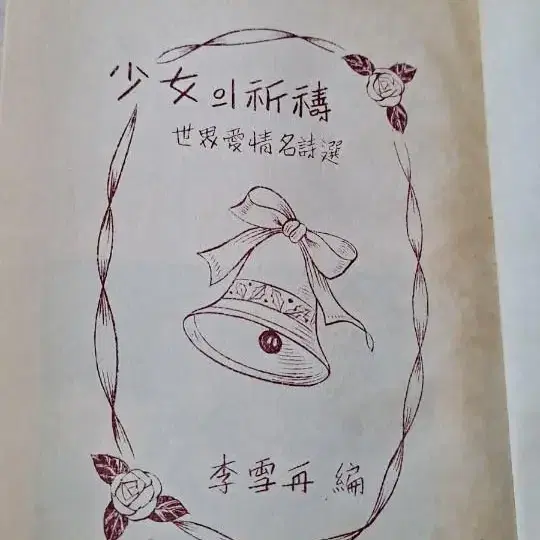 少女의祈禱
世界愛情名詩選
李雪再 編